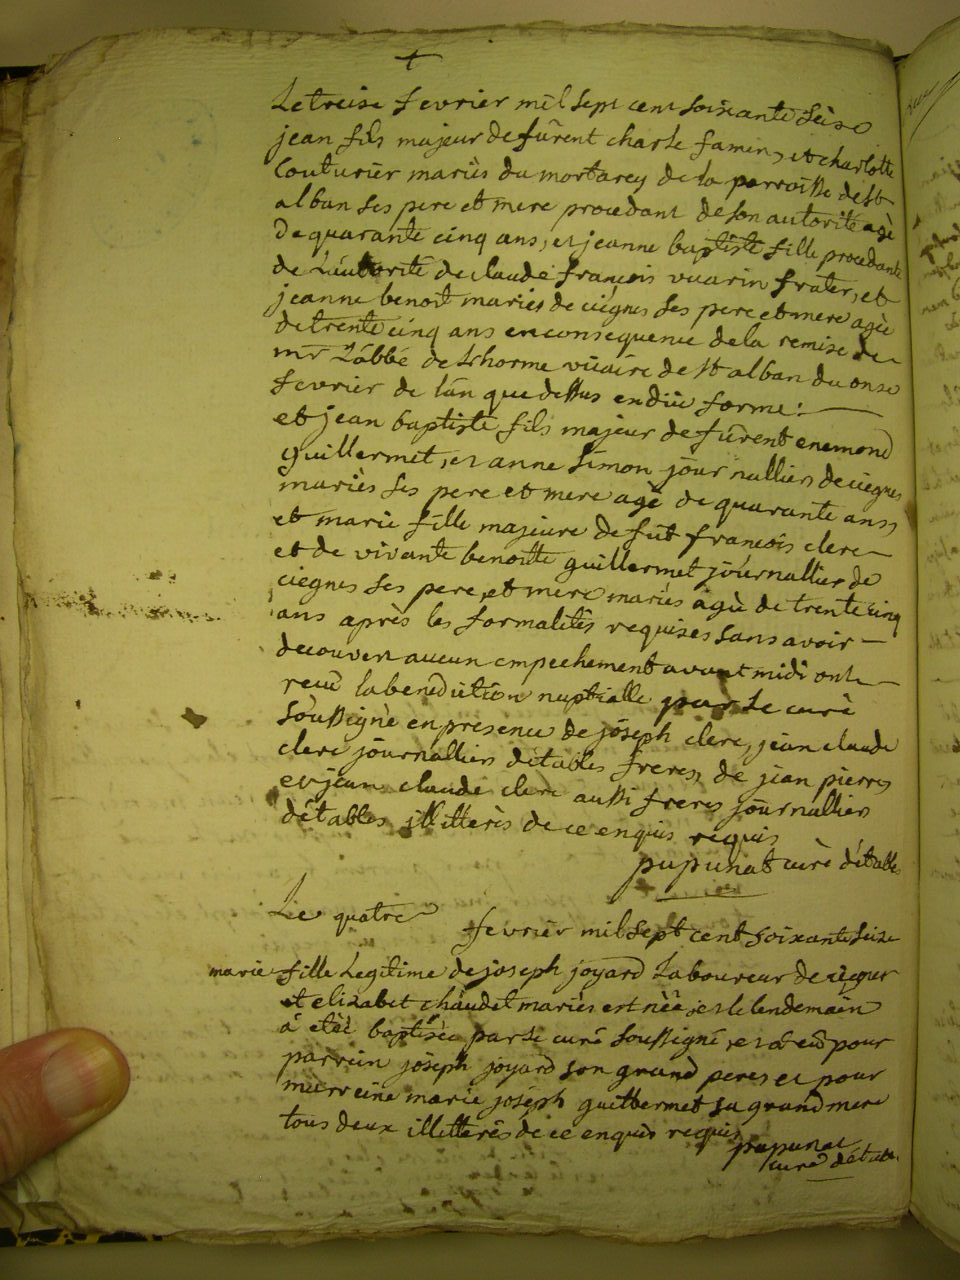 +
Le treise fevrier mil sept cent soixante seise
jean fils majeur de fûrent charle famin, et charlotte
Couturier mariès du mortarey de la parroisse de st
alban ses pere et mere procedant de son autorité agè
de quarante cinq ans, et jeanne baptiste fille procedante
de Lautorité de claude françois vuarin frater, et
jeanne benoit mariès de ciegnes ses pere et mere agèe
de trente cinq ans en consequence de la remise de
mr Labbé de Lhorme vicaire de st alban du onse
fevrier de lan que dessus en düe forme:
et jean baptiste fils majeur de fûrent enemond
guillermet, et anne simon journalliers de ciegnes
mariès ses pere et mere agè de quarante ans,
et marie fille majeure de fût francois clerc
et de vivante benoitte guillermet journallier de
ciegnes ses pere, et mere mariès agèe de trente cinq
ans après les formalités requises sans avoir
decouvert aucun empechement avant midi ont
recû la benediction nuptialle par Le curè
soussignè en presence de joseph clerc, jean claude
clerc journalliers détables freres, de jean pierre
et jean claude clerc aussi freres journalliers
détables illitterès de ce enquis requis
pupunat curè détables
Le quatre fevrier mil sept cent soixante seise
marie fille Legitime de joseph joyard Laboureur de ciegnes
et elizabet chaudet mariès est nèe, et le lendemain
á etèe baptisée par Le curé soussigné, et á eû pour
parrein joseph joyard son grand pere et pour
marreine marie joseph guillermet sa grand mere
tous deux illitterés de ce enquis requis
pupunat
curè détables